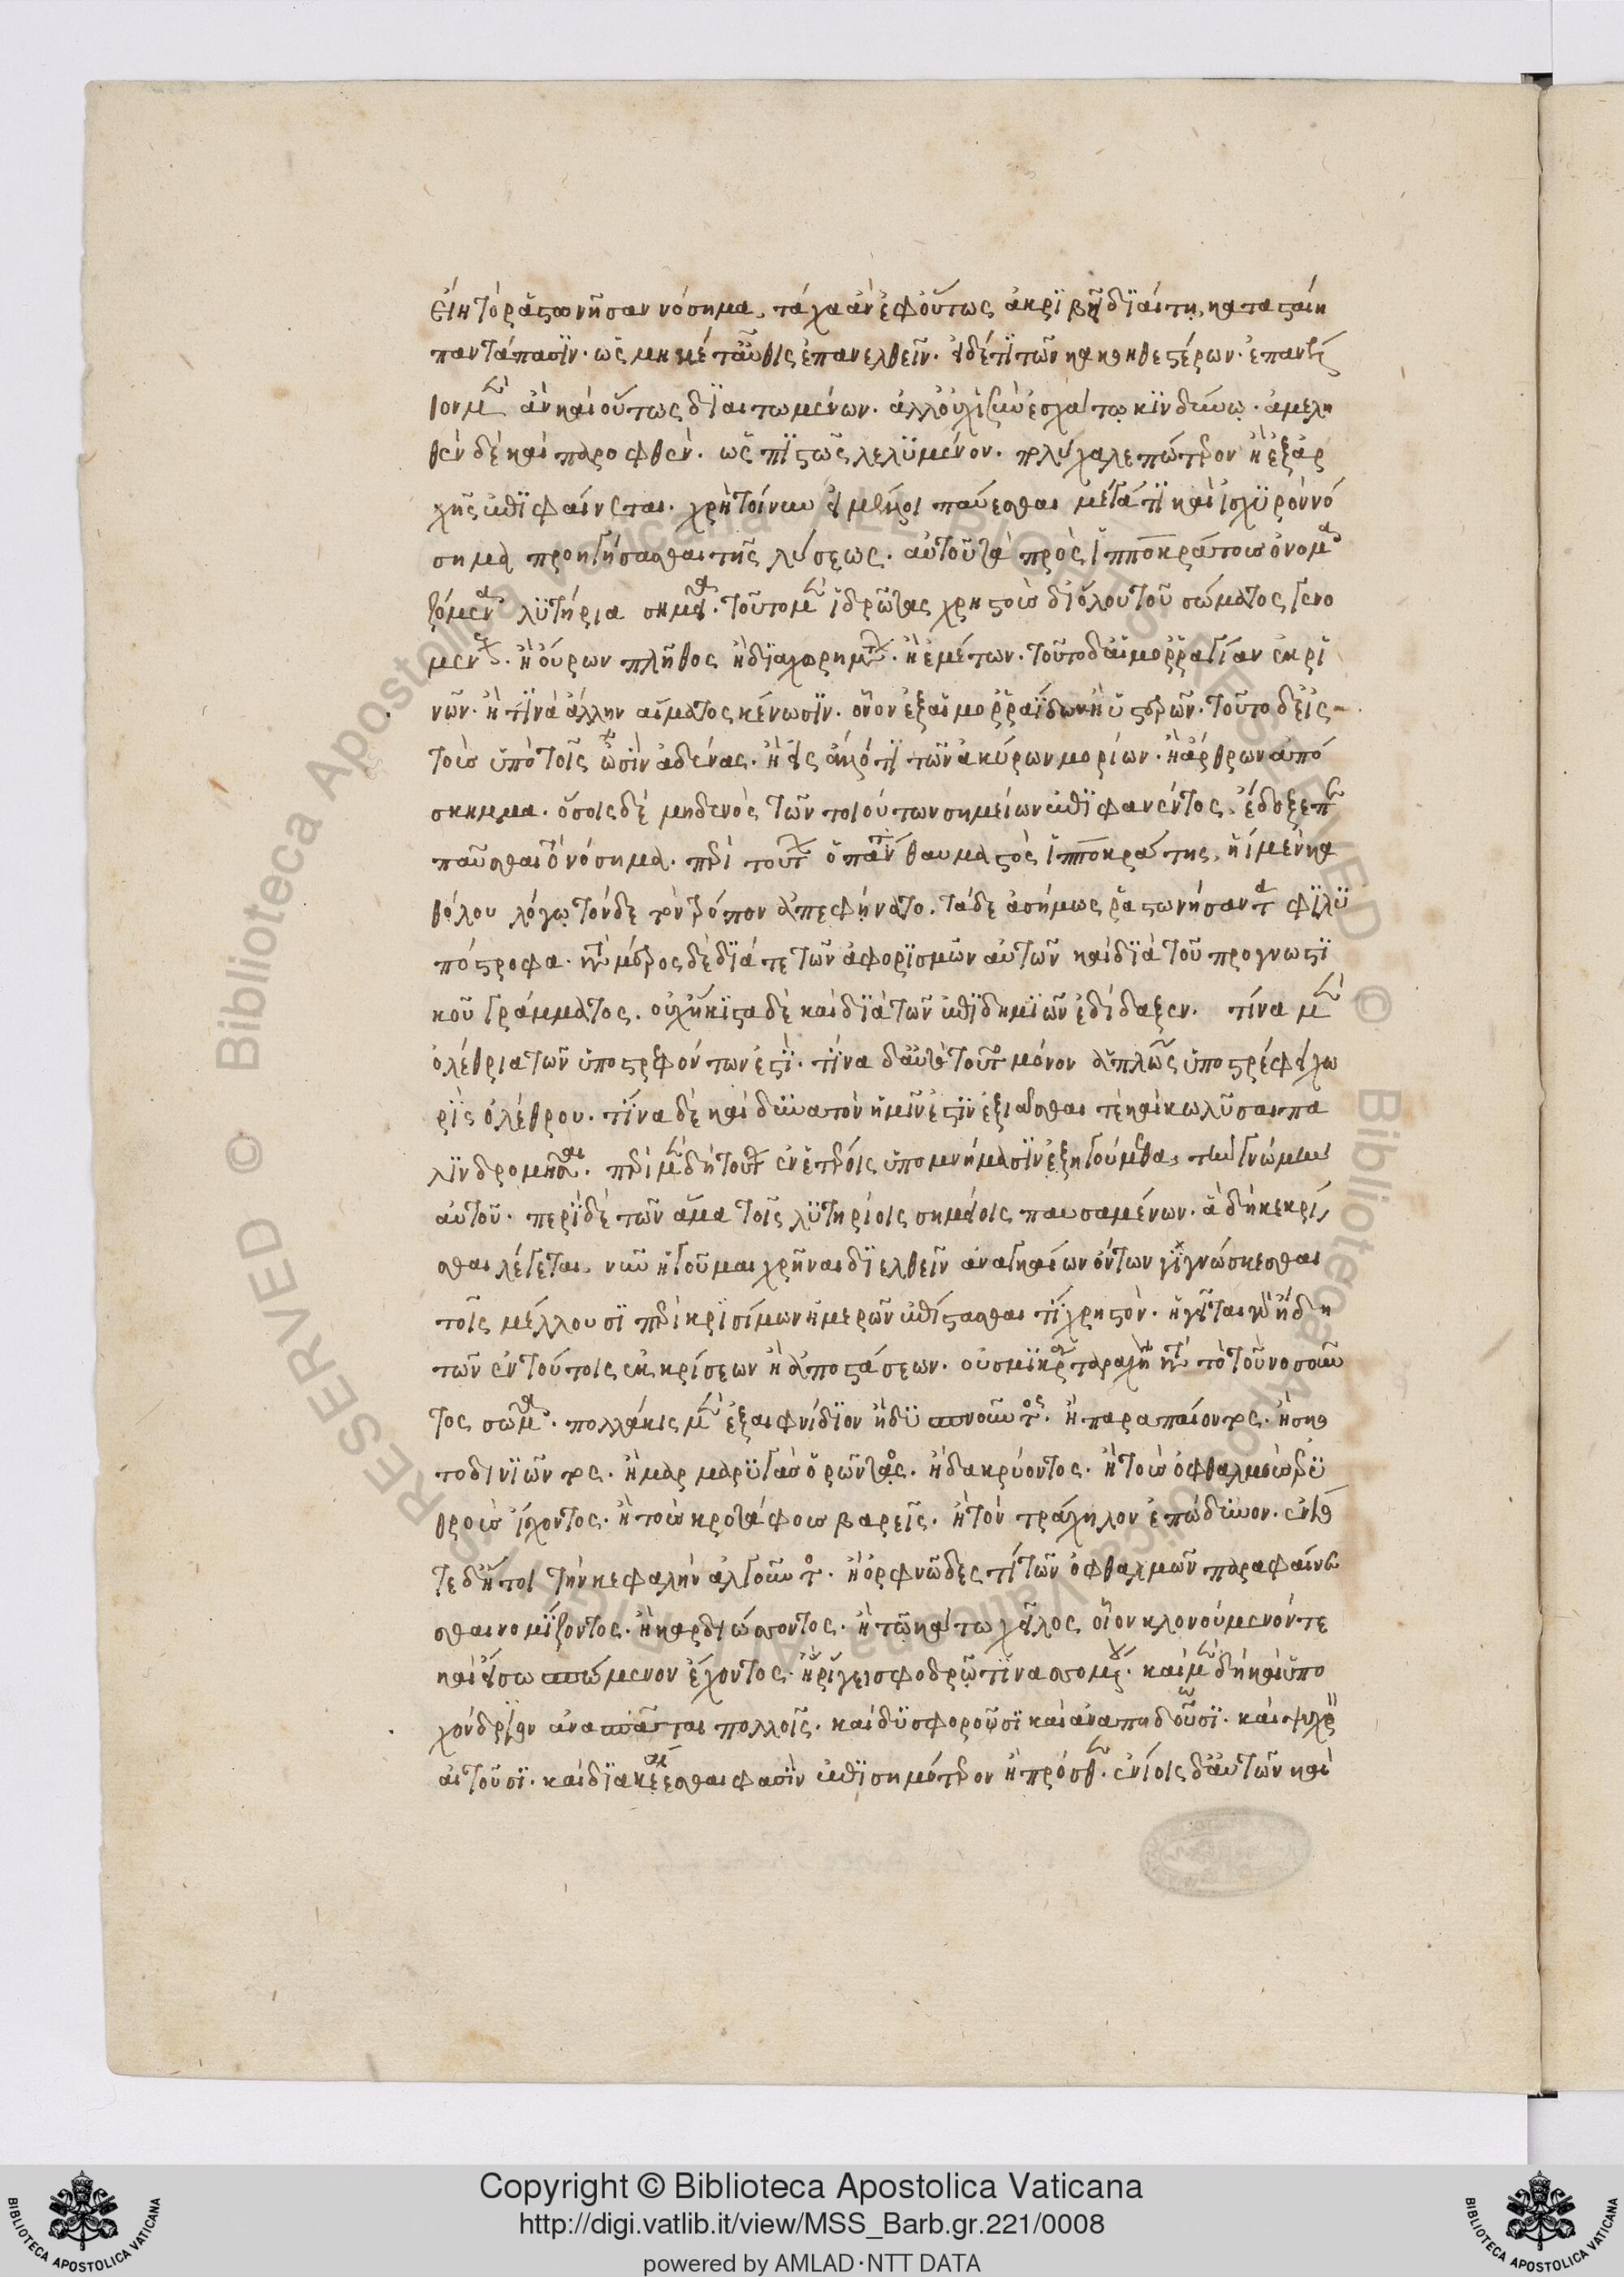 εἴη τὸ ῥαστωνῆσαν νόσημα, τάχα ἂν ἐφ οὕτως ἀκριβῆ διαίτη, κατασταίη
παντάπασιν. ὡς μηκέτ αὖθις ἐπανελθεῖν. οὐδέ τι τῶν κακοηθεστέρων.
μὲν ἂν καὶ οὕτως διαιτωμένων. ἀλλ οὐχὶ σὺν ἐσχάτω κινδύνω. ἀμελη
θὲν δὲ καὶ παροφθὲν. ὡς πιστῶς λελυμένον. πολὺ χαλεπώτερον ἢ ἐξ ἀρ
χῆς ἐπιφαίνεται. χρὴ τοίνυν εἰ μέλλοι παύεσθαι μέγά τι καὶ ἰσχυρὸν νό
σημα προηγήσασθαι τῆς λύσεως. αὐτοῦ τὰ πρὸς ἱπποκράτους ὀνομα
ζόμενα λυτήρια σημεῖα. τοῦτο μὲν ἱδρῶτας χρηστοὺς δι ὅλου τοῦ σώματος γενο
μένους. ἢ οὔρων πλῆθος ἢ διαχωρημάτων. ἢ ἐμέτων. τοῦτο δ αἱμορραγίαν ἐκ ῥι
νῶν. ἢ τινὰ ἄλλην αἵματος κένωσιν. οἷον ἐξ αἱμορροΐδων ἢ ὑστερῶν. τοῦτο δ εἰς
τοὺς ὑπὸ τοῖς ὠσὶν ἀδένας. ἢ εἰς ἄλλό τι τῶν ἀκύρων μορίων. ἢ ἄρθρων ἀπό
σκημμα. ὅσοις δὲ μηδενὸς τῶν τοιούτων σημείων ἐπιφανέντος. ἔδοξε
παῦσθαι τὸ νόσημα. περὶ τούτων ὁ πάντα θαυμαστὸς ἱπποκράτης, ἡμῖν
λόγω τόνδε τὸν τρόπον ἀπεφήνατο. τάδε ἀσήμως ῥαστωνήσαντα φιλυ
πόστροφα. κατὰ μέρος δὲ διά τε τῶν ἀφορισμῶν αὐτῶν καὶ διὰ τοῦ προγνωστι
κοῦ γράμματος. οὐχ ἥκιστα δὲ καὶ διὰ τῶν ἐπιδημιῶν ἐδίδαξεν. τίνα μὲν
ὀλέθρια τῶν ὑποστρεφόντων ἐστὶ. τίνα δ αὐτὸ τοῦτο μόνον ἁπλῶς ὑποστρέφει χω
ρὶς ὀλέθρου. τίνα δὲ καὶ δυνατὸν ἡμῖν ἐστὶν ἐξιᾶσθαι τὲ καὶ κωλῦσαι πα
λινδρομῆσαι. περὶ μὲν δὴ τούτων ἐν ἑτέροις ὑπομνήμασιν ἐξηγούμεθα, τὴν γνώμην
αὐτοῦ. περὶ δὲ τῶν ἅμα τοῖς λυτηρίοις σημείοις παυσαμένων. ἃ δὴ κεκρί
σθαι λέγεται, νῦν ἡγοῦμαι χρῆναι διελθεῖν ἀναγκαίων ὄντων γιγνώσκεσθαι
τοῖς μέλλουσι περὶ κρισίμων ἡμερῶν ἐπίστασθαι τί χρηστὸν. ἡγεῖται γὰρ ἤδη
τῶν ἐν τούτοις ἐκκρίσεων ἢ ἀποστάσεων. οὐ σμικρὰ ταραχὴ κατὰ τὸ τοῦ νοσοῦν
τος σῶμα. πολλάκις μὲν ἐξαιφνίδιον ἢ δυσπνοοῦντος. ἢ παραπαίοντος. ἢ σκο
τοδινιῶντος. ἢ μαρμαρυγὰς ὁρῶντος. ἢ δακρύοντος. ἢ τοὺς ὀφθαλμοὺς ἐρυ
θροὺς ἴσχοντος. ἢ τοὺς κροτάφους βαρεῖς. ἢ τὸν τράχηλον ἐπώδυνον.
τε δή τοι τὴν κεφαλὴν ἀλγοῦντος. ἢ ὀρφνῶδες τί τῶν ὀφθαλμῶν παραφαίνε
σθαι νομίζοντος. ἢ καρδιώσσοντος. ἢ τὸ κάτω χεῖλος οἷον κλονούμενόν τε
καὶ εἴσω σπώμενον ἔχοντος. ἢ ῥίγει σφοδρῶ τινα σειομένου. καὶ μὲν δὴ καὶ ὑπο
χόνδριον ἀνασπᾶται πολλοῖς. καὶ δυσφοροῦσι καὶ ἀναπηδῶσι. καὶ ψυχρὸν
αἰτοῦσι. καὶ διακαίεσθαι φασὶν ἐπισημότερον ἢ πρόσθεν. ἐνίοις δ αὐτῶν καὶ
Copyright © Biblioteca Apostolica Vaticana
http://digi.vatlib.it/view/MSS_Barb.gr.221/0008
powered by AMLAD·NTT DATA